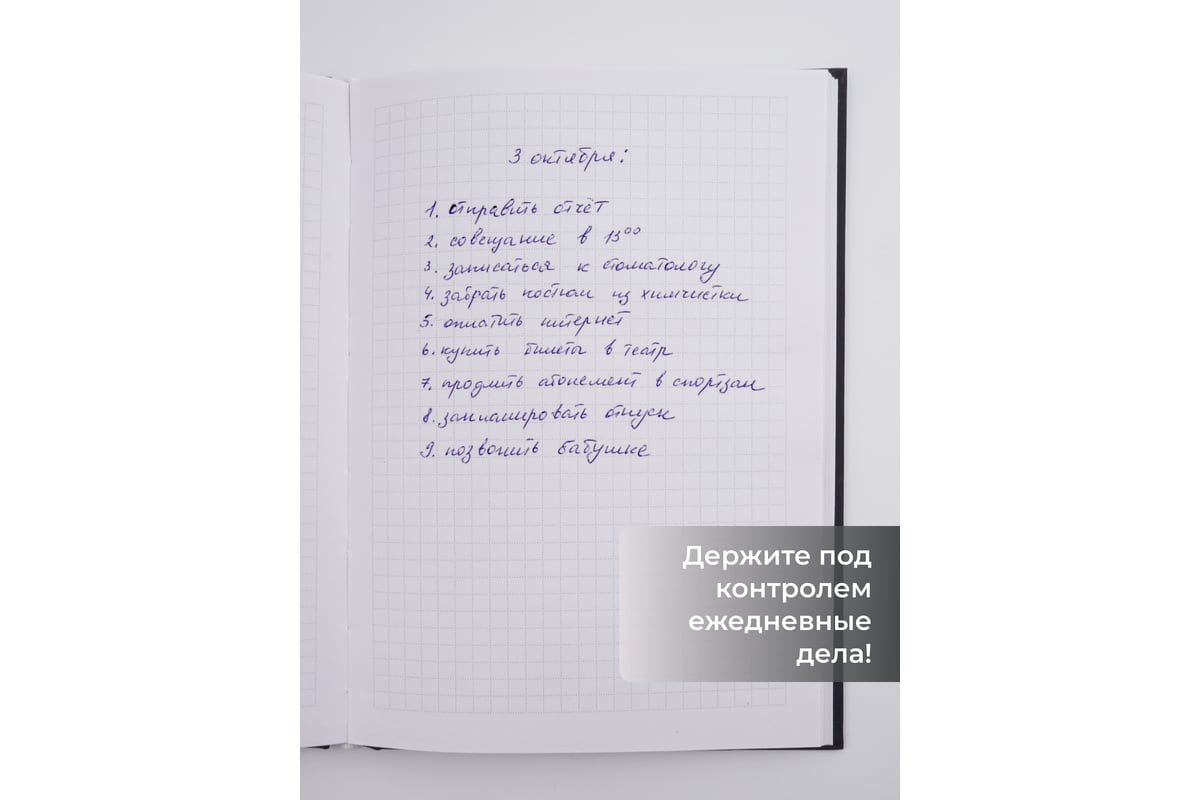 3 октября:
1. отправить отчёт
2. совещание в 13⁰⁰
3. записаться к стоматологу
4. забрать костюм из химчистки
5. оплатить интернет
6. купить билеты в театр
7. продлить абонемент в спортзал
8. запланировать отпуск
9. позвонить бабушке
Держите под
контролем
ежедневные
дела!